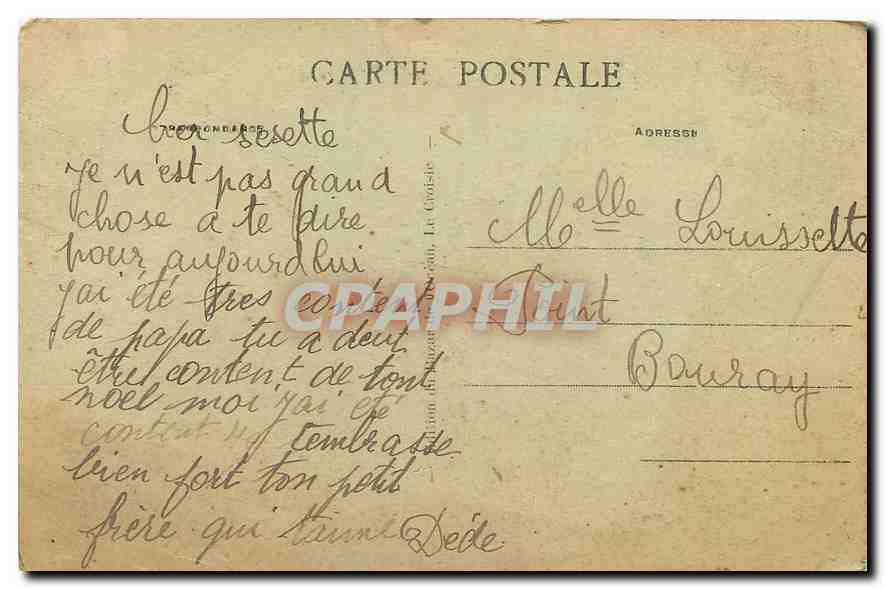 CARTE POSTALE
CORRESPONDANCE
ADRESSE
Cher sesette
Je n'est pas grand
chose a te dire
pour aujourdhui
j'ai été tres content
de papa tu a deut
être content de tont
noel moi j'ai été
content
tembrasse
bien fort ton petit
frère qui t'aime Déde
Edition du Bazar Juteau, Le Croisic
Melle Louissette
Point
Bouray
CPAPHIL